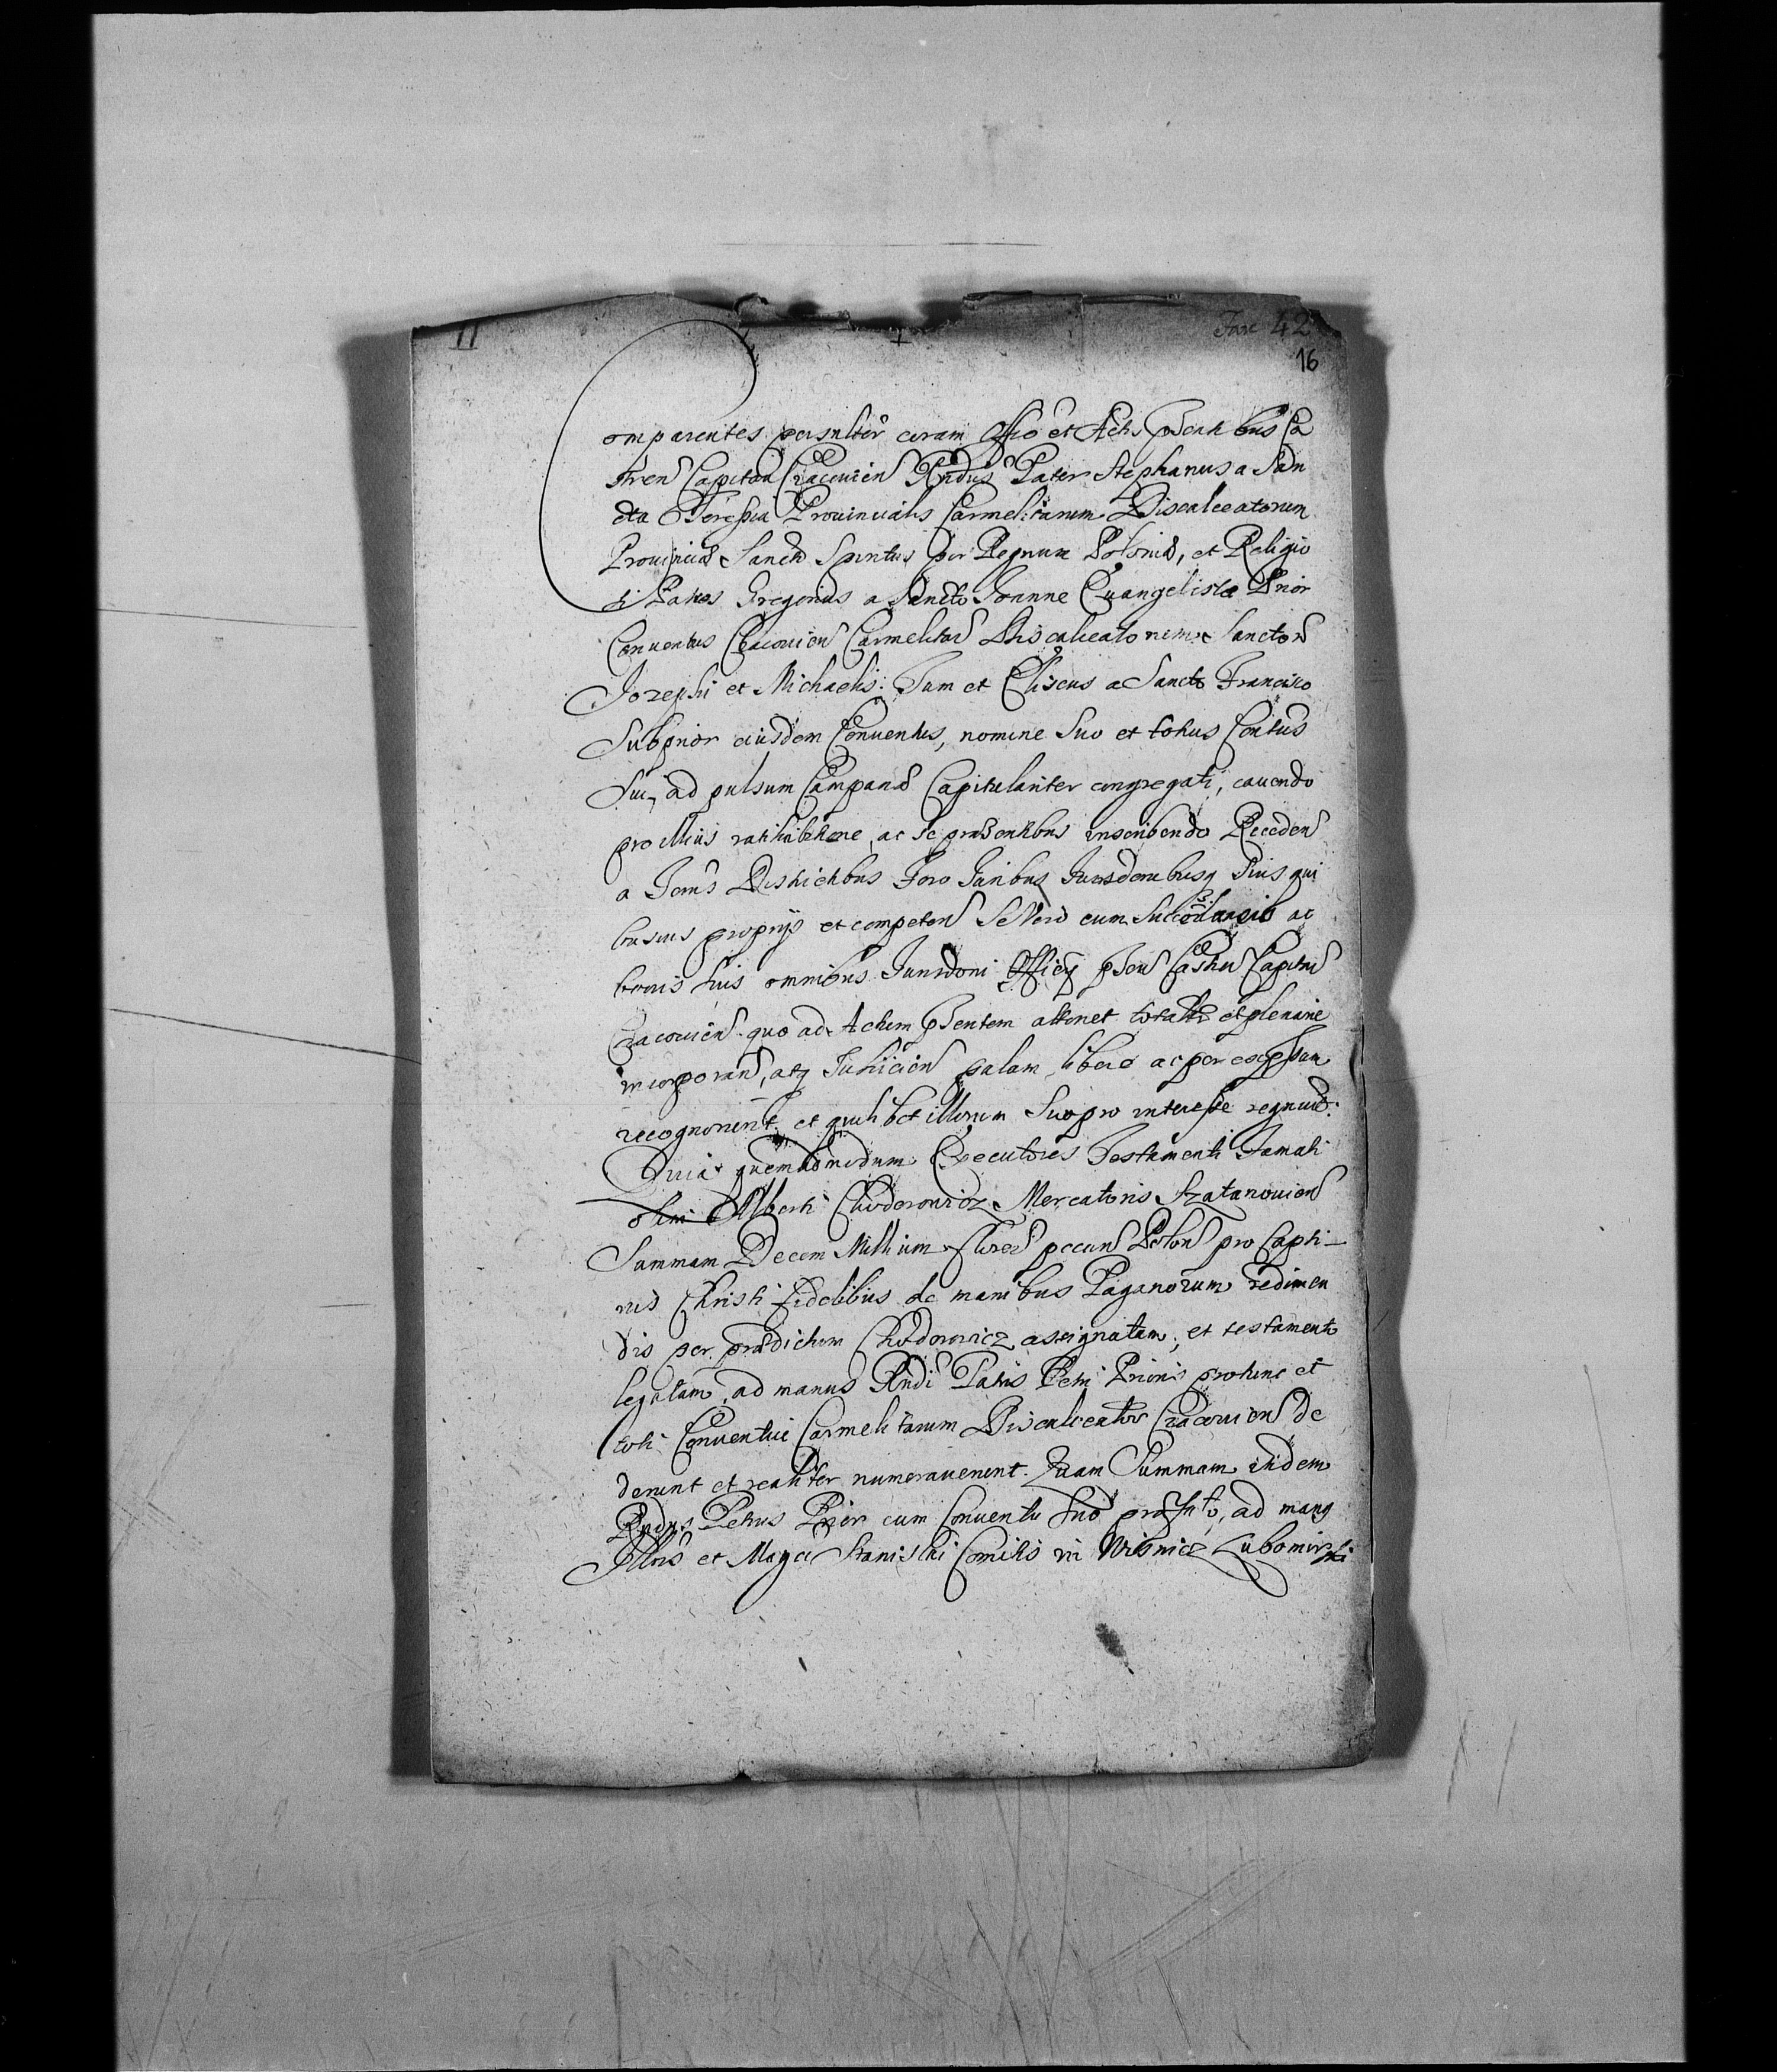 11
+
Fasc 42
16
Comparentes persnlter coram Offio et Actis pntibus Ca
stren Capitan Cracovien Rndus Pater Stephanus a San
cta Teressia Provincialis Carmelitarum Discalceatorum
Provinciæ Sancti Spiritus per Regnum Poloniæ, et Religio
si Patres Gregorius a Sancto Joanne Evangelista Prior
Conventus Cracovien Carmelitar Discalceatorum Sanctor
Jozephi et Michaelis: Tum et Eliseus a Sancto Francisco
Subprior eiusdem Conventus, nomine suo et totius Contus
sui, ad pulsum Campanæ Capitulariter congregati, cavendo
pro illius ratihabitione, ac se præsentibus inscribendo Receden
a Terris Districtibus Foro Juribus Jurisdonibusq suis qui
busvis proprijs et competen se vero cum successoribus ac
bonis suis omnibus Jurisdoni Officij pntis Castren Capitan
Cracovien quo ad Actum pntem attinet totaliter et plenarie
incorporan, atq Subijcien palam libere ac per expssum
recognoverunt, et quilibet illorum suo pro interesse regnuit.
Quia quemadmodum Executores Testamenti Famati
olim Alberti Chodorowicz Mercatoris Szatanovien
Summam Decem Millium floren pecun Polon pro Capti-
vis Christi fidelibus de manibus Paganorum redimen
dis per prædictum Chodorowicz assignatam, et testamento
legatam, ad manus Rndi Patris Petri Prioris protunc et
toti Conventui Carmelitarum Discalceator Cracovien de
derunt et realiter numeraverunt. Quam Summam iidem
Rndus Petrus Prior cum Conventu suo præfato, ad manus
Illris et Magci Stanislai Comitis in Wisnicz Lubomirski